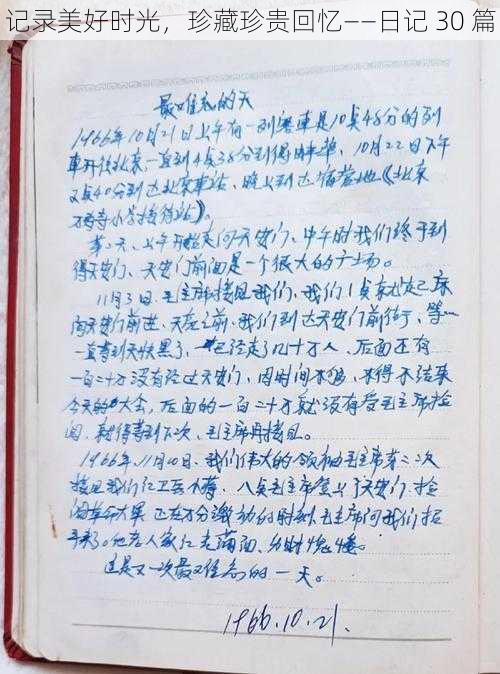 记录美好时光，珍藏珍贵回忆——日记 30 篇
最难忘的天
1966年10月21日上午有一列客车是10点48分的列
车开往北京,一直到4点38分到得蚌埠，10月22日下午
2点40分到达北京车站，晚上到达宿营地《北京
小学接待站》。
第二天、上午开始走向天安门、中午时我们终于到
得天安门、天安门前面是一个很大的广场。
11月3日、毛主席接见我们,我们1点来钟
向天安门前进、天安门之前,我们到达天安门前、等
一直等到天快黑了、已经走了几十万人、后面还有
一百二十万没有经过天安门、因时间不够、不得不结束
今天的大会，后面的一百二十万就没有受毛主席检
阅、就得等到下次、毛主席再接见。
1966年、11月10日、我们伟大的领袖毛主席第二次
接见我们红卫兵、八点毛主席登上了天安门、检
阅革命大军、正在万分激动的时刻、毛主席向我们招
手、他老人家红光满面、
这是又一次最难忘的一天。
1966.10.21.